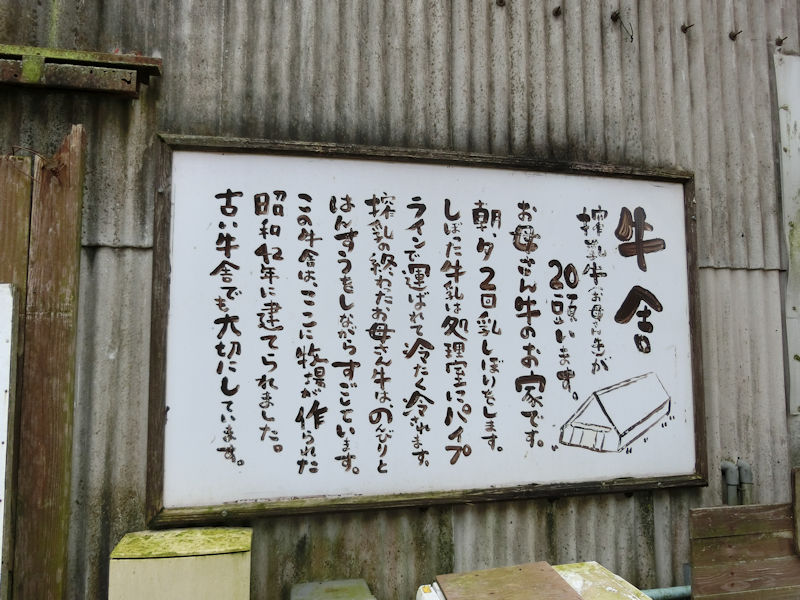 牛舎
搾乳牛(お母さん牛)が
20頭います。
お母さん牛のお家です。
朝・夕2回乳しぼりをします。
しぼった牛乳は処理室にパイプ
ラインで運ばれて冷たく冷されます。
搾乳の終わったお母さん牛はのんびりと
はんすうをしながらすごしています。
この牛舎は、ここに牧場が作られた
昭和42年に建てられました。
古い牛舎でも大切にしています。